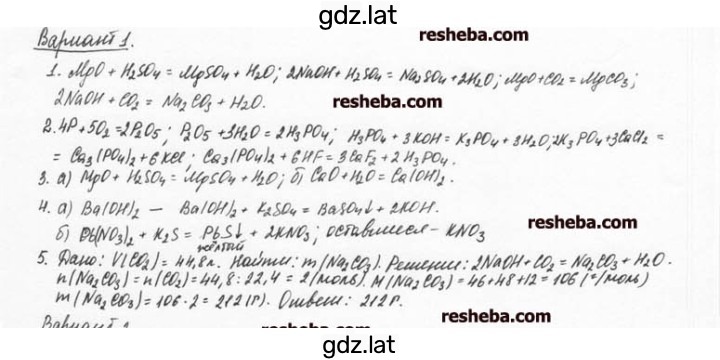 gdz.lat
Вариант 1.
resheba.com
1. MgO + H₂SO₄ = MgSO₄ + H₂O; 2NaOH + H₂SO₄ = Na₂SO₄ + 2H₂O; MgO + CO₂ = MgCO₃;
2NaOH + CO₂ = Na₂CO₃ + H₂O.
resheba.com
2. 4P + 5O₂ = 2P₂O₅; P₂O₅ + 3H₂O = 2H₃PO₄; H₃PO₄ + 3KOH = K₃PO₄ + 3H₂O; 2K₃PO₄ + 3CaCl₂ =
= Ca₃(PO₄)₂ + 6KCl; Ca₃(PO₄)₂ + 6HF = 3CaF₂ + 2H₃PO₄.
3. а) MgO + H₂SO₄ = MgSO₄ + H₂O; б) CaO + H₂O = Ca(OH)₂.
resheba.com
4. а) Ba(OH)₂ — Ba(OH)₂ + K₂SO₄ = BaSO₄↓ + 2KOH.
б) Pb(NO₃)₂ + K₂S = PbS↓ + 2KNO₃; оставшиеся - KNO₃
жёлтый
5. Дано: V(CO₂) = 44,8л. Найти: m(Na₂CO₃). Решение: 2NaOH + CO₂ = Na₂CO₃ + H₂O.
n(Na₂CO₃) = n(CO₂) = 44,8 : 22,4 = 2(моль). M(Na₂CO₃) = 46+48+12 = 106(г/моль)
m(Na₂CO₃) = 106·2 = 212(г). Ответ: 212г.
resheba.com
Вариант
resheba.com
gdz.lat